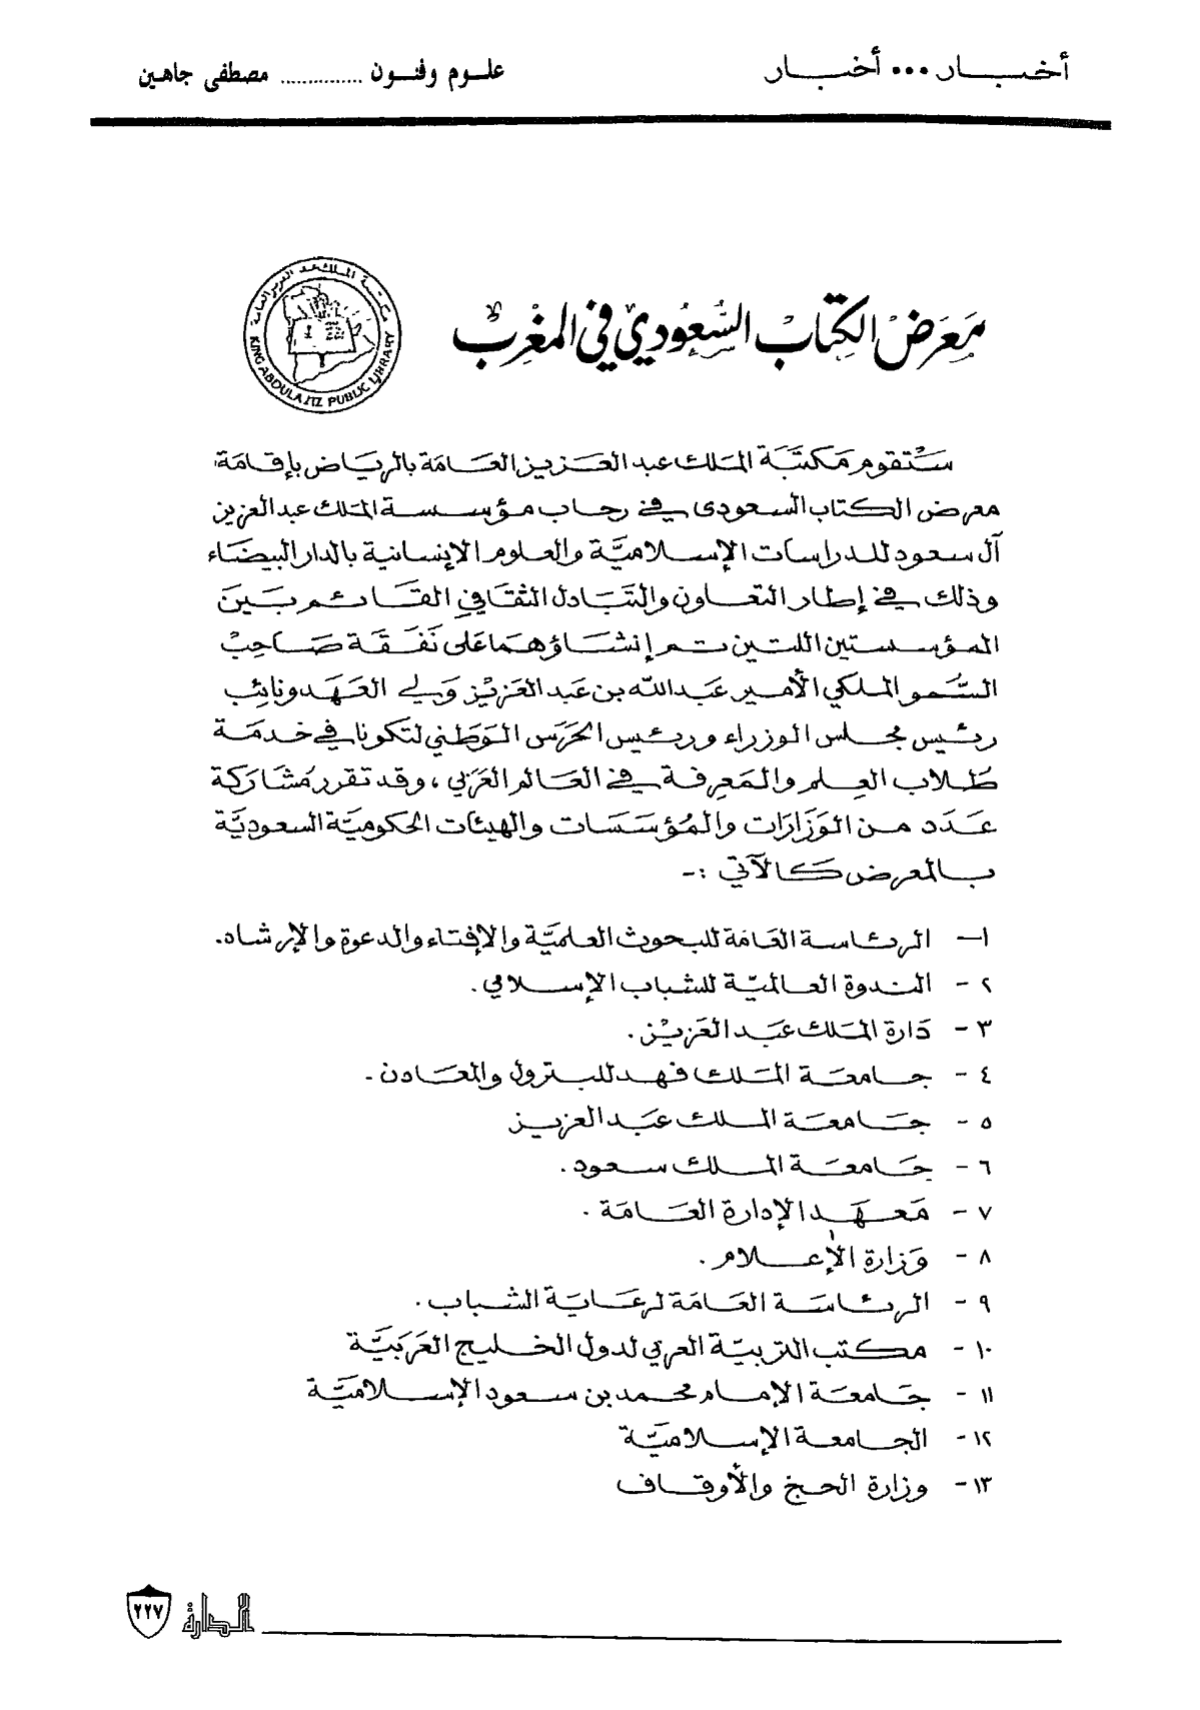 أخبار ... أخبار
علوم وفنون .............. مصطفى جاهين
مَعرَضْ الكِتابْ السُعوُدي في المغْرِبْ
مكتبة الملك عبد العزيز العامة
KING ABDULAZIZ PUBLIC LIBRARY
سَتْقوم مَكتَبَة المَلك عبد العَزيز العَامَة بالريَاض بإقامَة
معرض الكتاب السعودى في رحاب مؤسسة المَلك عبد العزيز
آل سعود للدراسات الإسلاميَّة والعلوم الإنسانية بالدار البيضَاء
وذلك في إطار التعاون والتَبَادل الثقَافي القَائم بَينَ
المؤسستين اللتين تم إنشَاؤهمَا عَلى نَفَقَة صَاحِبْ
السُمو الملكي الأمير عَبد الله بن عَبد العَزيْز وَلي العَهَد ونائِب
رئيس مجلس الوزراء ورئيس الحَرَس الوَطَني لتكونا في خدمَة
طُلاب العِلم والمَعرِفة في العَالم العَرَبي ، وقد تقرر مُشَارَكة
عَدَد من الوَزَارَات والمُؤسَسَات والهيئات الحكوميَّة السعوديَّة
بالمعرض كَالآتي :-
١- الرئاسة العَامَة للبحوث العلميَّة والإفتاء والدعوة والإرشاد.
٢ - الندوة العالميّة للشباب الإسلامي .
٣ - دَارة المَلك عبَد العَزيْز .
٤ - جامعَة المَلك فهد للبترول والمعَادن .
٥ - جَامعَة الملك عبَد العزيز
٦ - جَامعَة الملك سعود .
٧ - مَعهَد الإدارة العَامَة .
٨ - وَزارة الإعلام .
٩ - الرئاسَة العَامَة لرعَايَة الشباب .
١٠ - مكتب التربيّة العربي لدول الخليج العَرَبَيَّة
١١ - جَامعَة الإمام محمد بن سعود الإسلاميَّة
١٢ - الجامعة الإسلاميَّة
١٣ - وزارة الحج والأوقاف
الدارة
٢٢٧